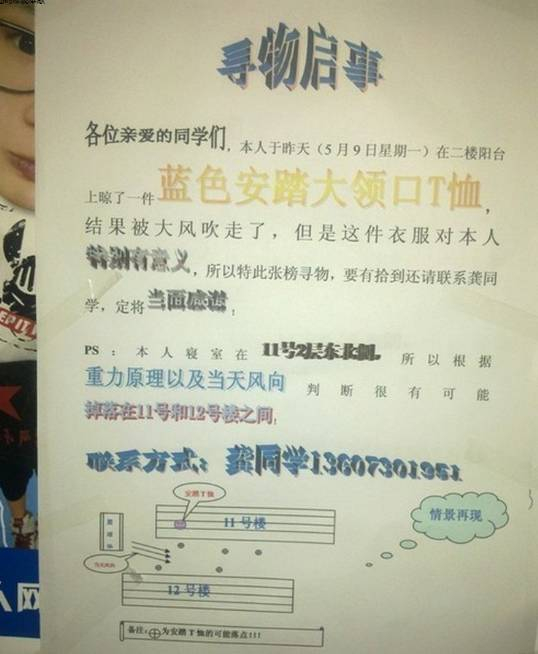 寻物启事
各位亲爱的同学们，本人于昨天（5月9日星期一）在二楼阳台
上晾了一件蓝色安踏大领口T恤，
结果被大风吹走了，但是这件衣服对本人
特别有意义，所以特此张榜寻物，要有拾到还请联系龚同
学，定将当面感谢！
PS：本人寝室在11号2层东北侧。所以根据
重力原理以及当天风向判断很有可能
掉落在11号和12号楼之间！
联系方式：龚同学13607301951
安踏T恤
11号楼
情景再现
12号楼
备注：为安踏T恤的可能落点!!!
网